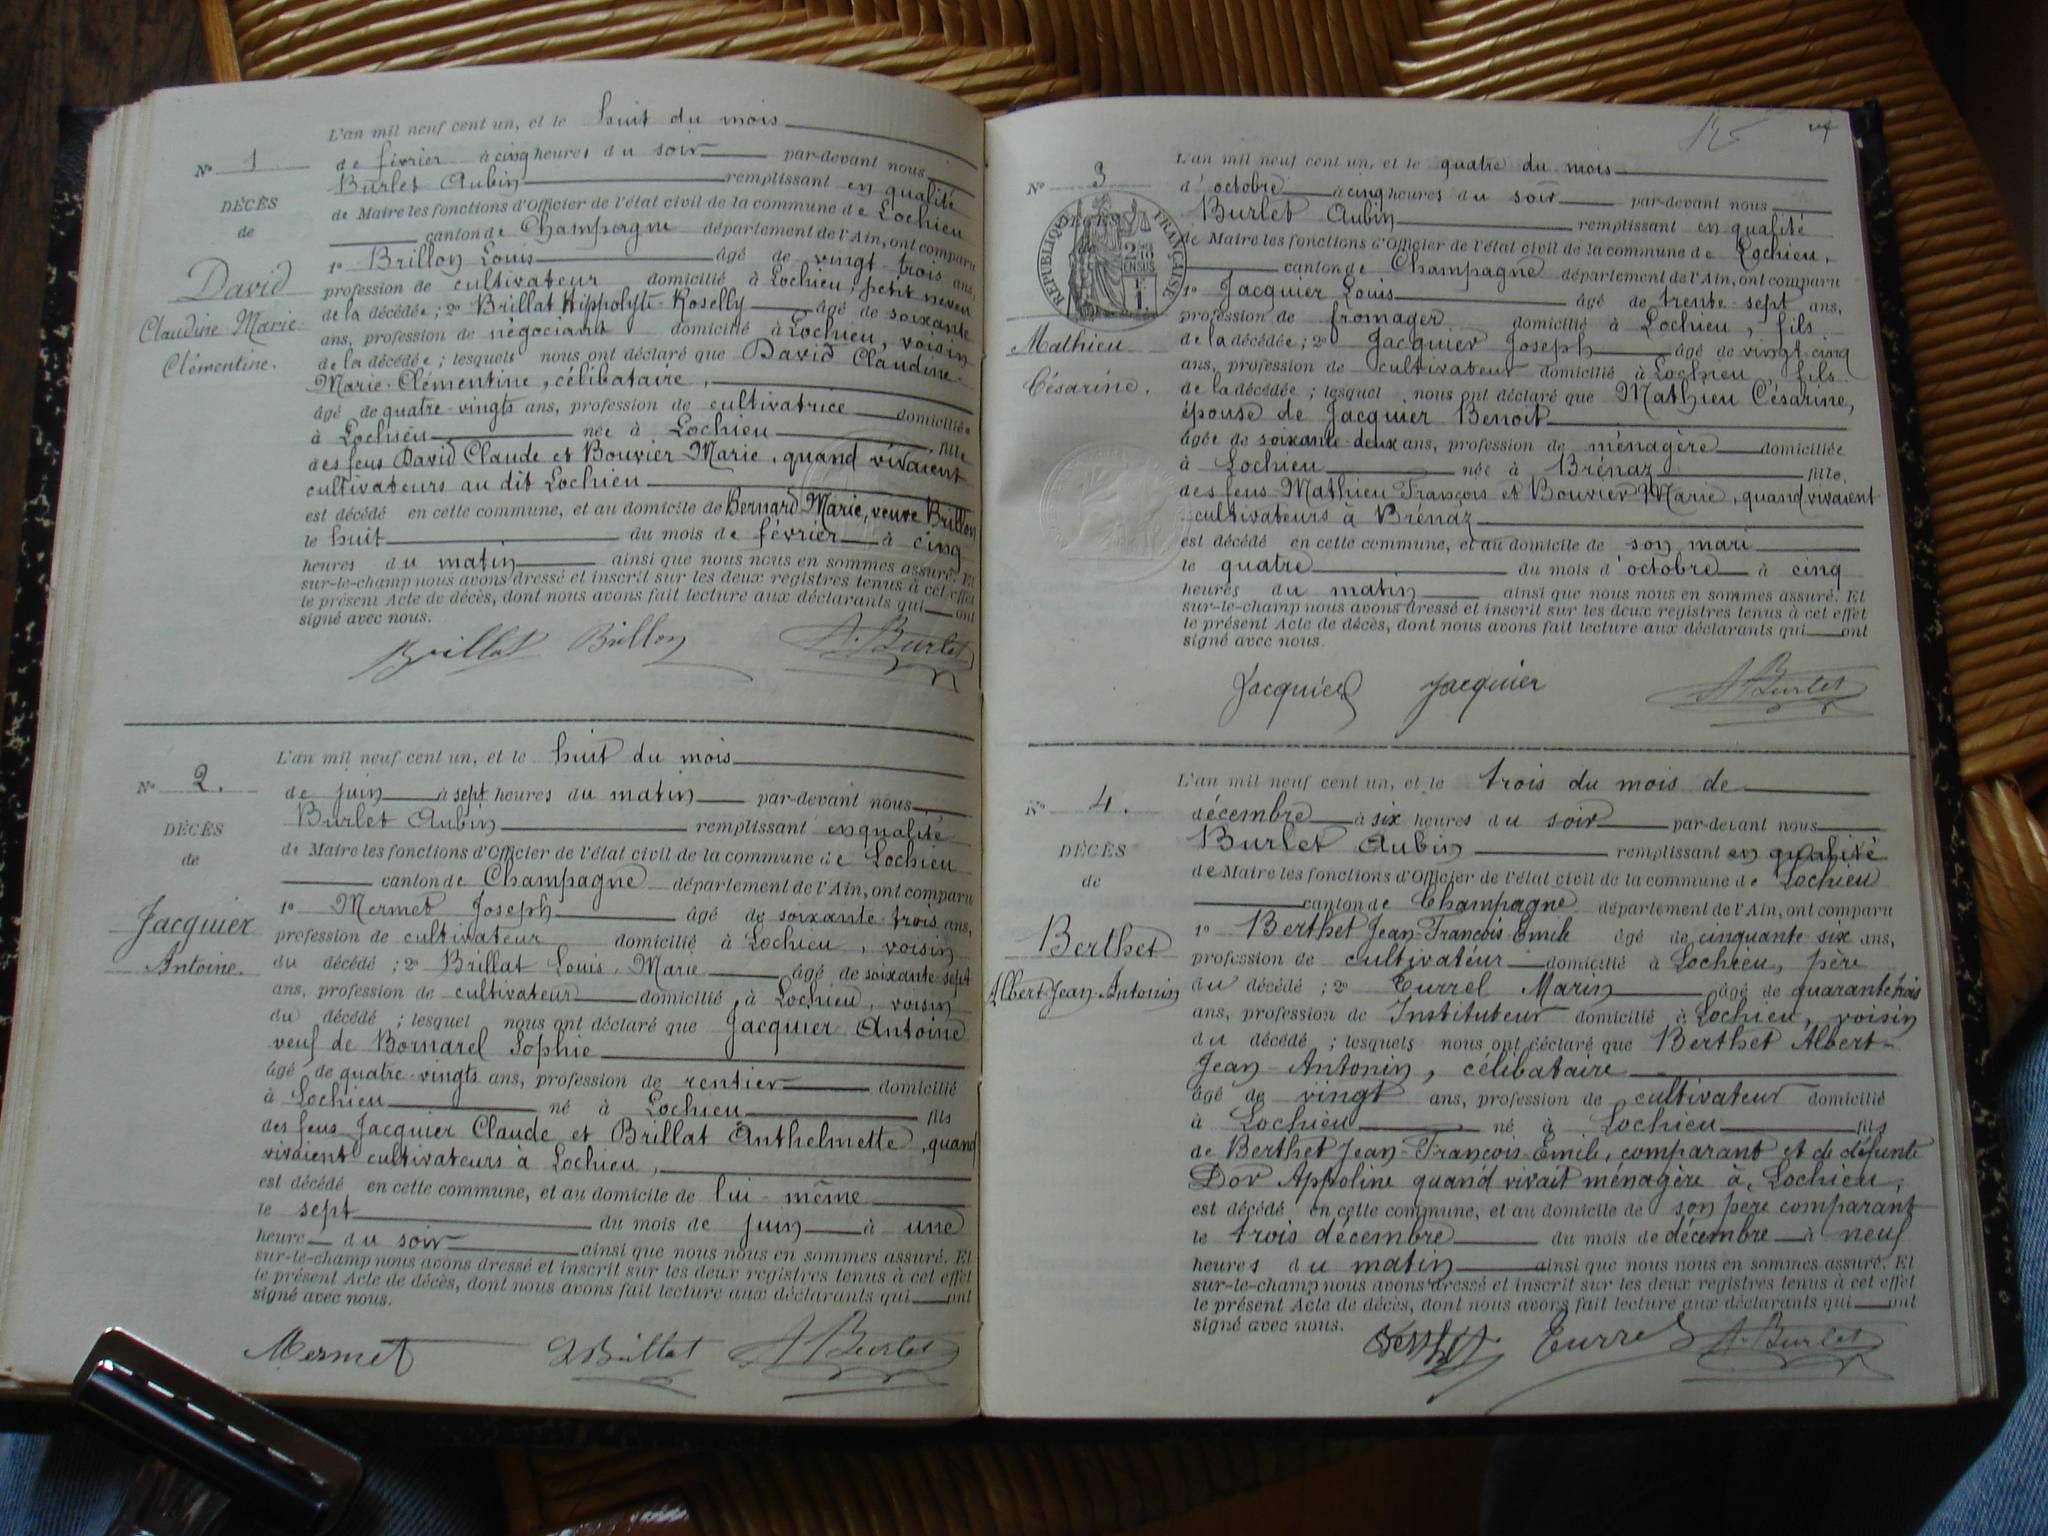 L'an mil neuf cent un, et le huit du mois
N° 1 de février à cinq heures du soir par-devant nous
Burlet Aubin remplissant en qualité
DÉCÈS
de Maire les fonctions d'Officier de l'état civil de la commune de Lochieu
de
canton de Champagne département de l'Ain, ont comparu
1° Brillon Louis âgé de vingt-trois ans,
David
profession de cultivateur domicilié à Lochieu, petit neveu
de la décédée ; 2° Brillat Hippolyte-Roselly âgé de soixante
Claudine Marie
ans, profession de négociant domicilié à Lochieu, voisin
Clémentine.
de la décédée ; lesquels nous ont déclaré que David Claudine-
Marie-Clémentine, célibataire,
âgé de quatre-vingts ans, profession de cultivatrice domiciliée
à Lochieu née à Lochieu fille
des feus David Claude et Bouvier Marie, quand vivaient
cultivateurs au dit Lochieu
est décédé en cette commune, et au domicile de Bernard Marie, veuve Brillon
le huit du mois de février à cinq
heures du matin ainsi que nous nous en sommes assuré. Et
sur-le-champ nous avons dressé et inscrit sur les deux registres tenus à cet effet
le présent Acte de décès, dont nous avons fait lecture aux déclarants qui ont
signé avec nous.
Brillat Brillon A. Burlet
L'an mil neuf cent un, et le huit du mois
N° 2. de juin à sept heures du matin par-devant nous
Burlet Aubin remplissant en qualité
DÉCÈS
de Maire les fonctions d'Officier de l'état civil de la commune de Lochieu
de
canton de Champagne département de l'Ain, ont comparu
1° Mermet Joseph âgé de soixante-trois ans,
Jacquier
profession de cultivateur domicilié à Lochieu, voisin
Antoine.
du décédé ; 2° Brillat Louis-Marie âgé de soixante-sept
ans, profession de cultivateur domicilié à Lochieu, voisin
du décédé ; lesquel nous ont déclaré que Jacquier Antoine
veuf de Bornarel Sophie
âgé de quatre-vingts ans, profession de rentier domicilié
à Lochieu né à Lochieu fils
des feus Jacquier Claude et Brillat Anthelmette, quand
vivaient cultivateurs à Lochieu,
est décédé en cette commune, et au domicile de lui-même
le sept du mois de juin à une
heure du soir ainsi que nous nous en sommes assuré. Et
sur-le-champ nous avons dressé et inscrit sur les deux registres tenus à cet effet
le présent Acte de décès, dont nous avons fait lecture aux déclarants qui ont
signé avec nous.
Mermet LBrillat A. Burlet
L'an mil neuf cent un, et le quatre du mois
N° 3
d'octobre à cinq heures du soir par-devant nous
Burlet Aubin remplissant en qualité
RÉPUBLIQUE FRANÇAISE
de Maire les fonctions d'Officier de l'état civil de la commune de Lochieu,
canton de Champagne département de l'Ain, ont comparu
1° Jacquier Louis âgé de trente-sept ans,
profession de fromager domicilié à Lochieu, fils
Mathieu
de la décédée ; 2° Jacquier Joseph âgé de vingt-cinq
ans, profession de cultivateur domicilié à Lochieu, fils
Césarine.
de la décédée ; lesquel nous ont déclaré que Mathieu Césarine,
épouse de Jacquier Benoit
âgée de soixante-deux ans, profession de ménagère domiciliée
à Lochieu née à Brénaz fille
des feus Mathieu François et Bouvier Marie, quand vivaient
cultivateurs à Brénaz
est décédé en cette commune, et au domicile de son mari
le quatre du mois d'octobre à cinq
heures du matin ainsi que nous nous en sommes assuré. Et
sur-le-champ nous avons dressé et inscrit sur les deux registres tenus à cet effet
le présent Acte de décès, dont nous avons fait lecture aux déclarants qui ont
signé avec nous.
Jacquier Jacquier A Burlet
L'an mil neuf cent un, et le trois du mois de
N° 4.
décembre à six heures du soir par-devant nous
Burlet Aubin remplissant en qualité
DÉCÈS
de Maire les fonctions d'Officier de l'état civil de la commune de Lochieu
de
canton de Champagne département de l'Ain, ont comparu
1° Berthet Jean-François-Emile âgé de cinquante-six ans,
Berthet
profession de cultivateur domicilié à Lochieu, père
Albert-Jean-Antonin
du décédé ; 2° Turrel Marin âgé de quarante trois
ans, profession de Instituteur domicilié à Lochieu, voisin
du décédé ; lesquels nous ont déclaré que Berthet Albert-
Jean-Antonin, célibataire
âgé de vingt ans, profession de cultivateur domicilié
à Lochieu né à Lochieu fils
de Berthet Jean-François-Emile, comparant et de défunte
Dor Appoline quand vivait ménagère à Lochieu,
est décédé en cette commune, et au domicile de son père comparant
le trois décembre du mois de décembre à neuf
heures du matin ainsi que nous nous en sommes assuré. Et
sur-le-champ nous avons dressé et inscrit sur les deux registres tenus à cet effet
le présent Acte de décès, dont nous avons fait lecture aux déclarants qui ont
signé avec nous.
Turrel A. Burlet